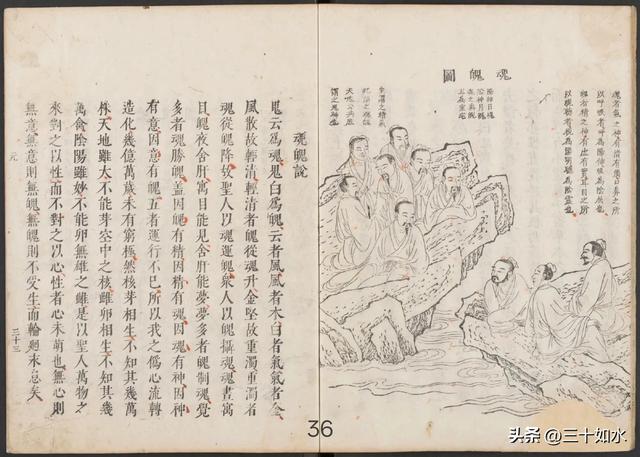 魂魄圖
魂者氣之神有清有濁口鼻之所
以呼吸者呼為陽伸吸為陰屈也
魄者精之神有虛有實耳目之所
以視聽者視為陽明聽為陰靈也
陽神曰魂
陰神曰魄
魂之與魄
互為室宅
生謂之精氣
死謂之魂魄
天地公共底
謂之鬼神也
魂魄說
鬼云為魂鬼白為魄云者風風者木白者氣氣者金
風散故輕清輕清者魄從魂升金堅故重濁重濁者
魂從魄降故聖人以魂運魄衆人以魄攝魂魂晝寓
目魄夜舍肝寓目能見舍肝能夢夢多者魄制魂覺
多者魂勝魄蓋因魄有精因精有魂因魂有神因神
有意因意有魄五者運行不已所以我之偽心流轉
造化幾億萬歲未有窮極然核芽相生不知其幾萬
株天地雖大不能芽空中之核雌卵相生不知其幾
萬禽陰陽雖妙不能卵無雄之雌是以聖人萬物之
來對之以性而不對之以心性者心未萌也無心則
無意無意則無魄無魄則不受生而輪廻末息矣
元
三十三
36
头条 @三十如水